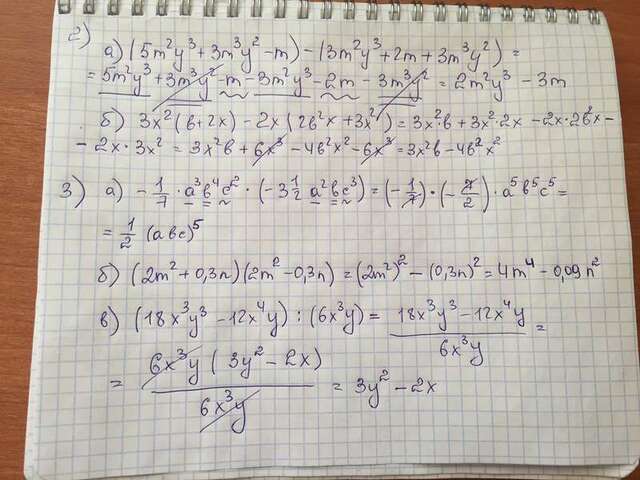 2) а) (5m²y³ + 3m³y² - m) - (3m²y³ + 2m + 3m³y²) =
= 5m²y³ + 3m³y² - m - 3m²y³ - 2m - 3m³y² = 2m²y³ - 3m
б) 3x²(b + 2x) - 2x(2b²x + 3x²) = 3x²·b + 3x²·2x - 2x·2b²x -
- 2x·3x² = 3x²b + 6x³ - 4b²x² - 6x³ = 3x²b - 4b²x²
3) а) - 1/7 · a³b⁴c² · (-3 1/2 a²bc³) = (- 1/7) · (- 7/2) · a⁵b⁵c⁵ =
= 1/2 (abc)⁵
б) (2m² + 0,3n)(2m² - 0,3n) = (2m²)² - (0,3n)² = 4m⁴ - 0,09n²
в) (18x³y³ - 12x⁴y) : (6x³y) = 18x³y³ - 12x⁴y / 6x³y =
= 6x³y (3y² - 2x) / 6x³y = 3y² - 2x